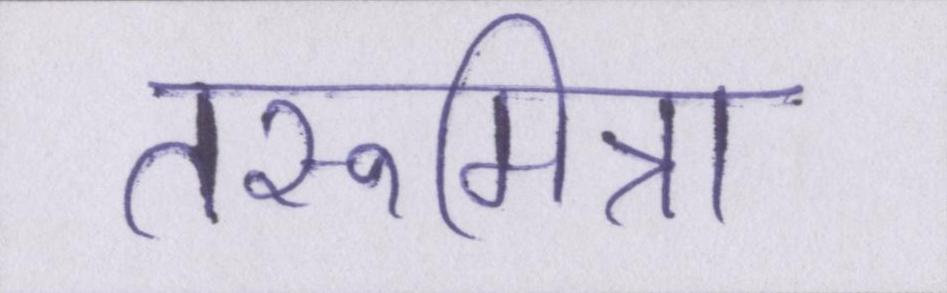 तरूमित्रा